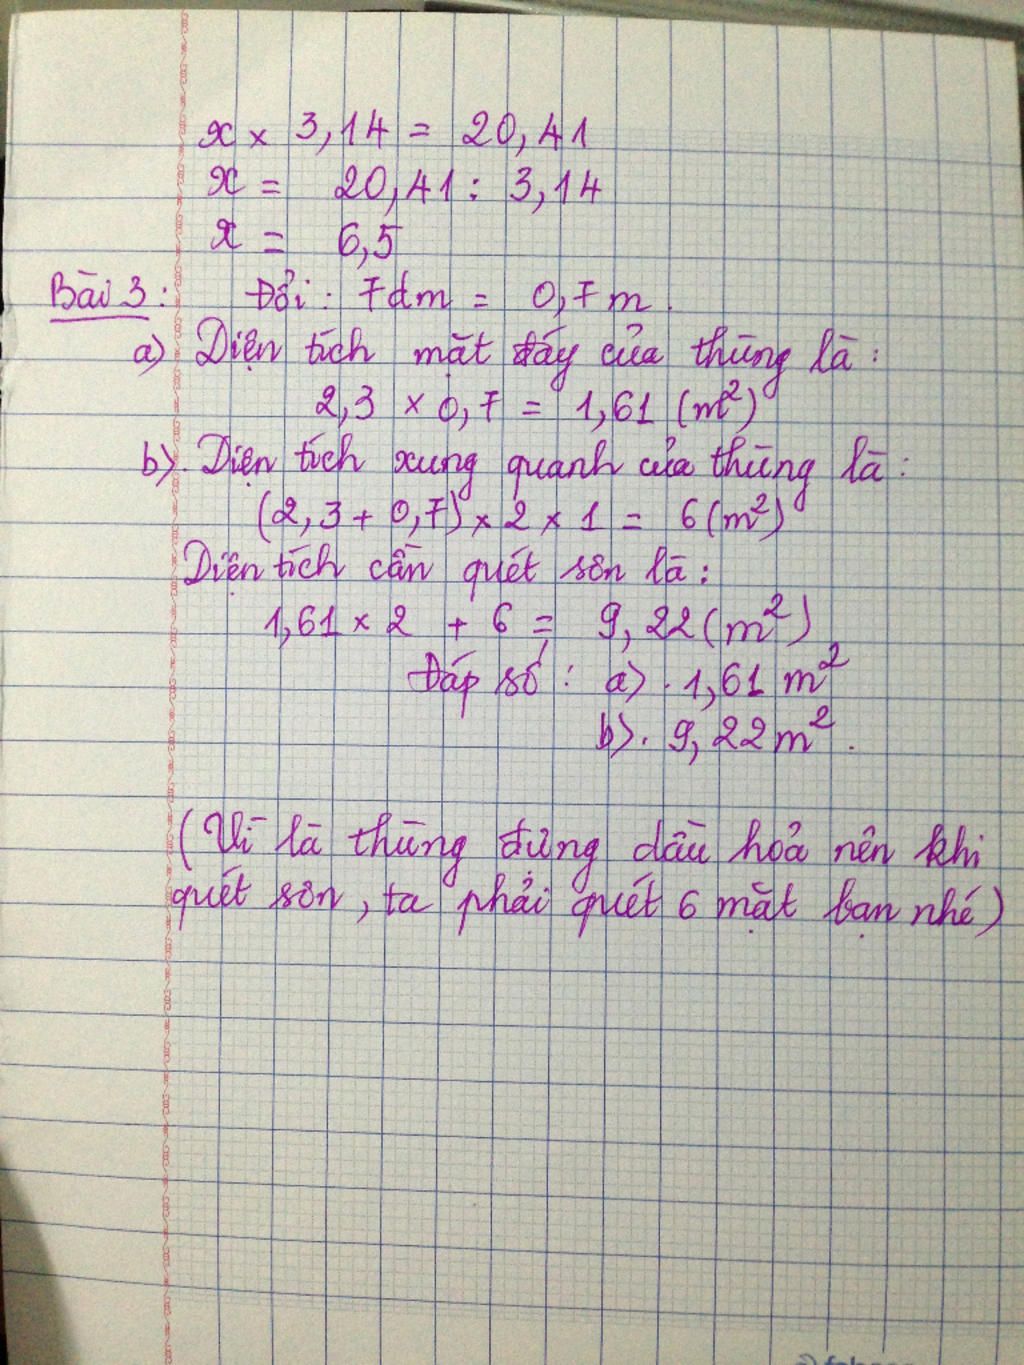 x × 3,14 = 20,41
x = 20,41 : 3,14
x = 6,5
Bài 3: Đổi: 7dm = 0,7m.
a) Diện tích mặt đáy của thùng là:
2,3 × 0,7 = 1,61 (m²)
b). Diện tích xung quanh của thùng là:
(2,3 + 0,7) × 2 × 1 = 6 (m²)
Diện tích cần quét sơn là:
1,61 × 2 + 6 = 9,22 (m²)
Đáp số: a). 1,61 m²
b). 9,22 m².
(Vì là thùng đựng dầu hoả nên khi
quét sơn, ta phải quét 6 mặt bạn nhé)